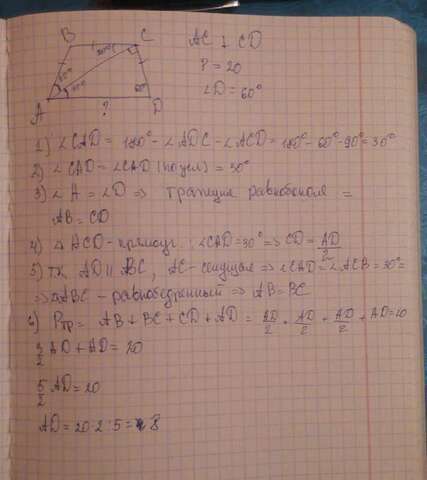 B C AC ⊥ CD
P = 20
∠D = 60°
30° 30° 30° 60°
A ? D
1) ∠CAD = 180° - ∠ADC - ∠ACD = 180° - 60° - 90° = 30°
2) ∠CAD = ∠CAD (по усл) = 30°
3) ∠A = ∠D => трапеция равнобокая =
AB = CD
4) △ ACD - прямоуг. ∠CAD = 30° => CD = AD/2
5) тк AD || BC, AC - секущая => ∠CAD = ∠ACB = 30° =
=> △ABC - равнобедренный => AB = BC
6) Pтр = AB + BC + CD + AD = AD/2 + AD/2 + AD/2 + AD = 20
3/2 AD + AD = 20
5/2 AD = 20
AD = 20 · 2 : 5 = 8